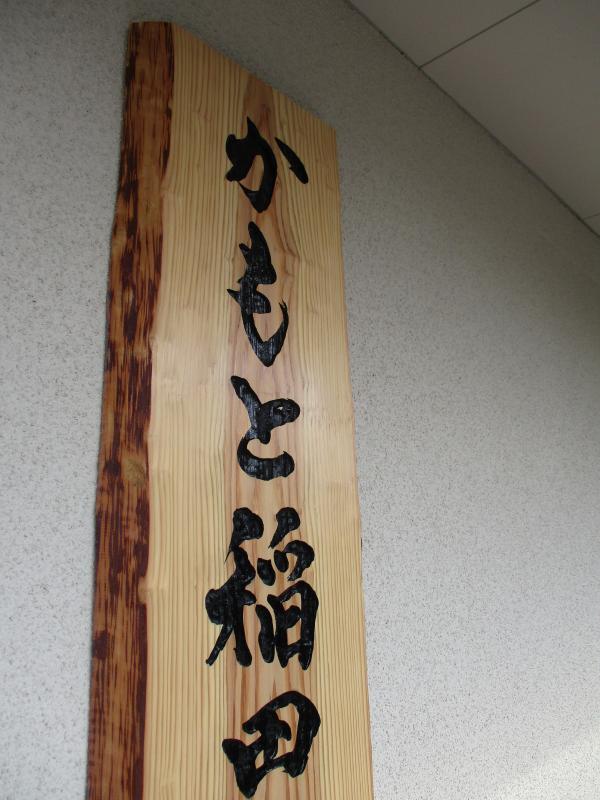 かもと稲田